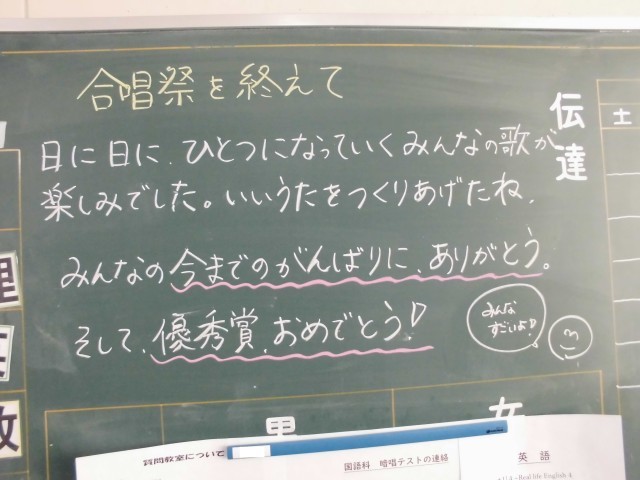 合唱祭を終えて
日に日に、ひとつになっていくみんなの歌が
楽しみでした。いいうたをつくりあげたね。
みんなの今までのがんばりに、ありがとう。
そして、優秀賞、おめでとう!
みんな
すごいよ!
伝達
土
理
男
女
質問教室について
国語科 暗唱テストの連絡
英語